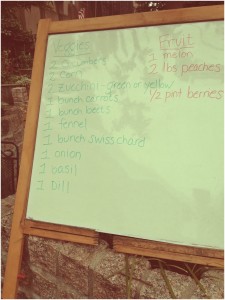 Veggies
2 cucumbers
2 corn
2 zucchini - green or yellow
1 bunch carrots
1 bunch beets
1 fennel
1 bunch swiss chard
1 onion
1 basil
1 Dill
Fruit
1 melon
2 lbs peaches
1/2 pint berries